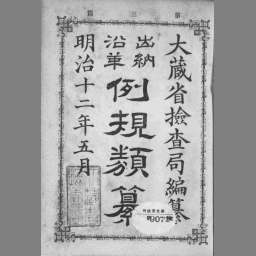 大蔵省檢查局編纂
出納
沿革
例規類纂
明治十二年五月